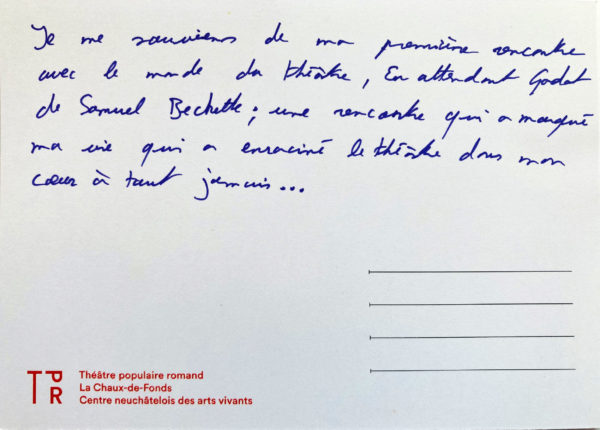 Je me souviens de ma première rencontre
avec le monde du théâtre, En attendant Godot
de Samuel Beckette; une rencontre qui a marqué
ma vie qui a enraciné le théâtre dans mon
cœur à tout jamais...
TPR
Théâtre populaire romand
La Chaux-de-Fonds
Centre neuchâtelois des arts vivants